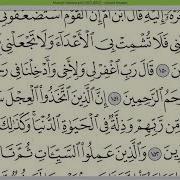 إِلَيْهِ قَالَ ٱبْنَ أُمَّ إِنَّ ٱلْقَوْمَ ٱسْتَضْعَفُونِى
فَلَا تُشْمِتْ بِىَ ٱلْأَعْدَآءَ وَلَا تَجْعَلْنِى
١٥٠ قَالَ رَبِّ ٱغْفِرْ لِى وَلِأَخِى وَأَدْخِلْنَا فِى
ٱلرَّٰحِمِينَ ١٥١ إِنَّ ٱلَّذِينَ ٱتَّخَذُوا۟ ٱلْعِجْلَ
مِّن رَّبِّهِمْ وَذِلَّةٌ فِى ٱلْحَيَوٰةِ ٱلدُّنْيَا وَكَذَٰلِكَ
١٥٢ وَٱلَّذِينَ عَمِلُوا۟ ٱلسَّيِّـَٔاتِ ثُمَّ